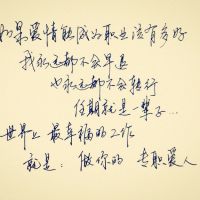 如果爱情能成为职业该有多好
我永远都不会早退
也永远都不会转行
任期就是一辈子…
世界上最幸福的工作
就是：做你的专职爱人